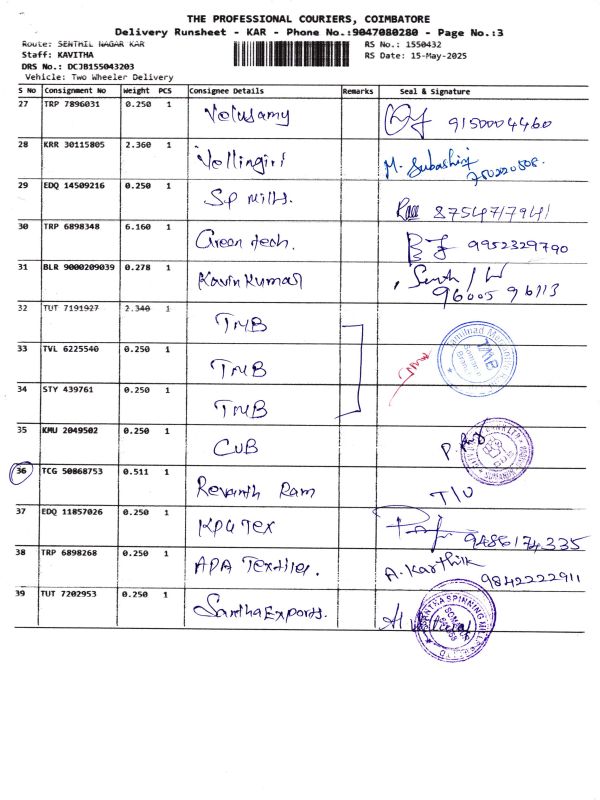 THE PROFESSIONAL COURIERS, COIMBATORE
Delivery Runsheet - KAR - Phone No.:9047080280 - Page No.:3
Route: SENTHIL NAGAR KAR
RS No.: 1550432
Staff: KAVITHA
RS Date: 15-May-2025
DRS No.: DCJB155043203
Vehicle: Two Wheeler Delivery
S No Consignment No Weight PCS Consignee Details Remarks Seal & Signature
27 TRP 7896031 0.250 1 Velusamy 9150004460
28 KRR 30115805 2.360 1 Vellingiri M. Subashini
29 EDQ 14509216 0.250 1 SP Mills. 8754717941
30 TRP 6898348 6.160 1 Green tech. 9952329790
31 BLR 9000209039 0.278 1 Kavin Kumar
32 TUT 7191927 2.340 1 TMB
33 TVL 6225540 0.250 1 TMB TMB
34 STY 439761 0.250 1 TMB
35 KMU 2049502 0.250 1 CUB
36 TCG 50868753 0.511 1 Revanth Ram T/U
37 EDQ 11857026 0.250 1 KPG Tex 9486174335
38 TRP 6898268 0.250 1 APA Textiles. A. Karthik 9842222911
39 TUT 7202953 0.250 1 Santha Exports.